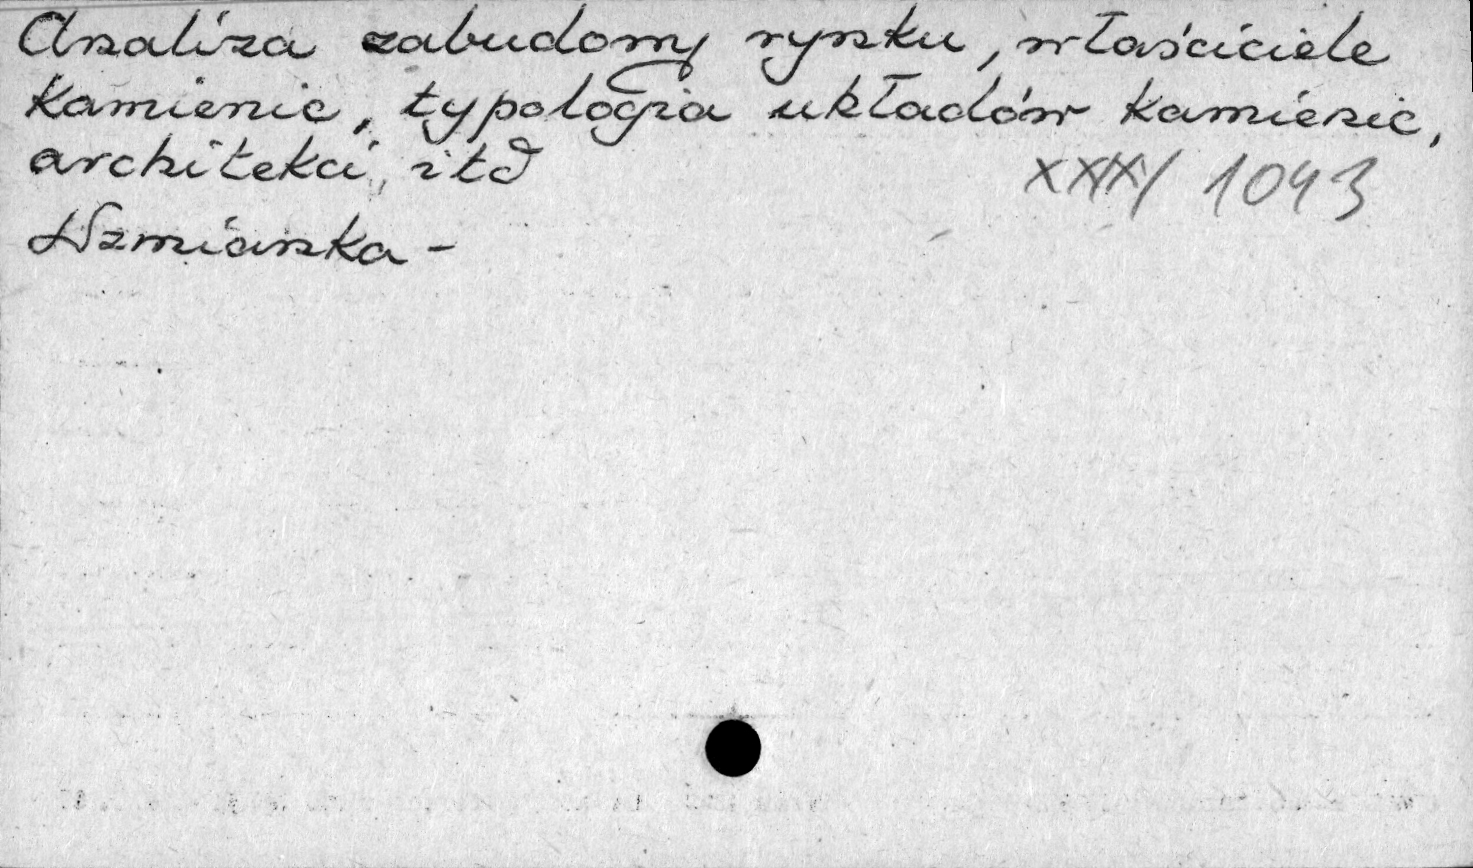 Analiza zabudowy rynku, właściciele
kamienic, typologia układów kamienic,
architekci, itd
XXIX/ 1043
Wzmianka -